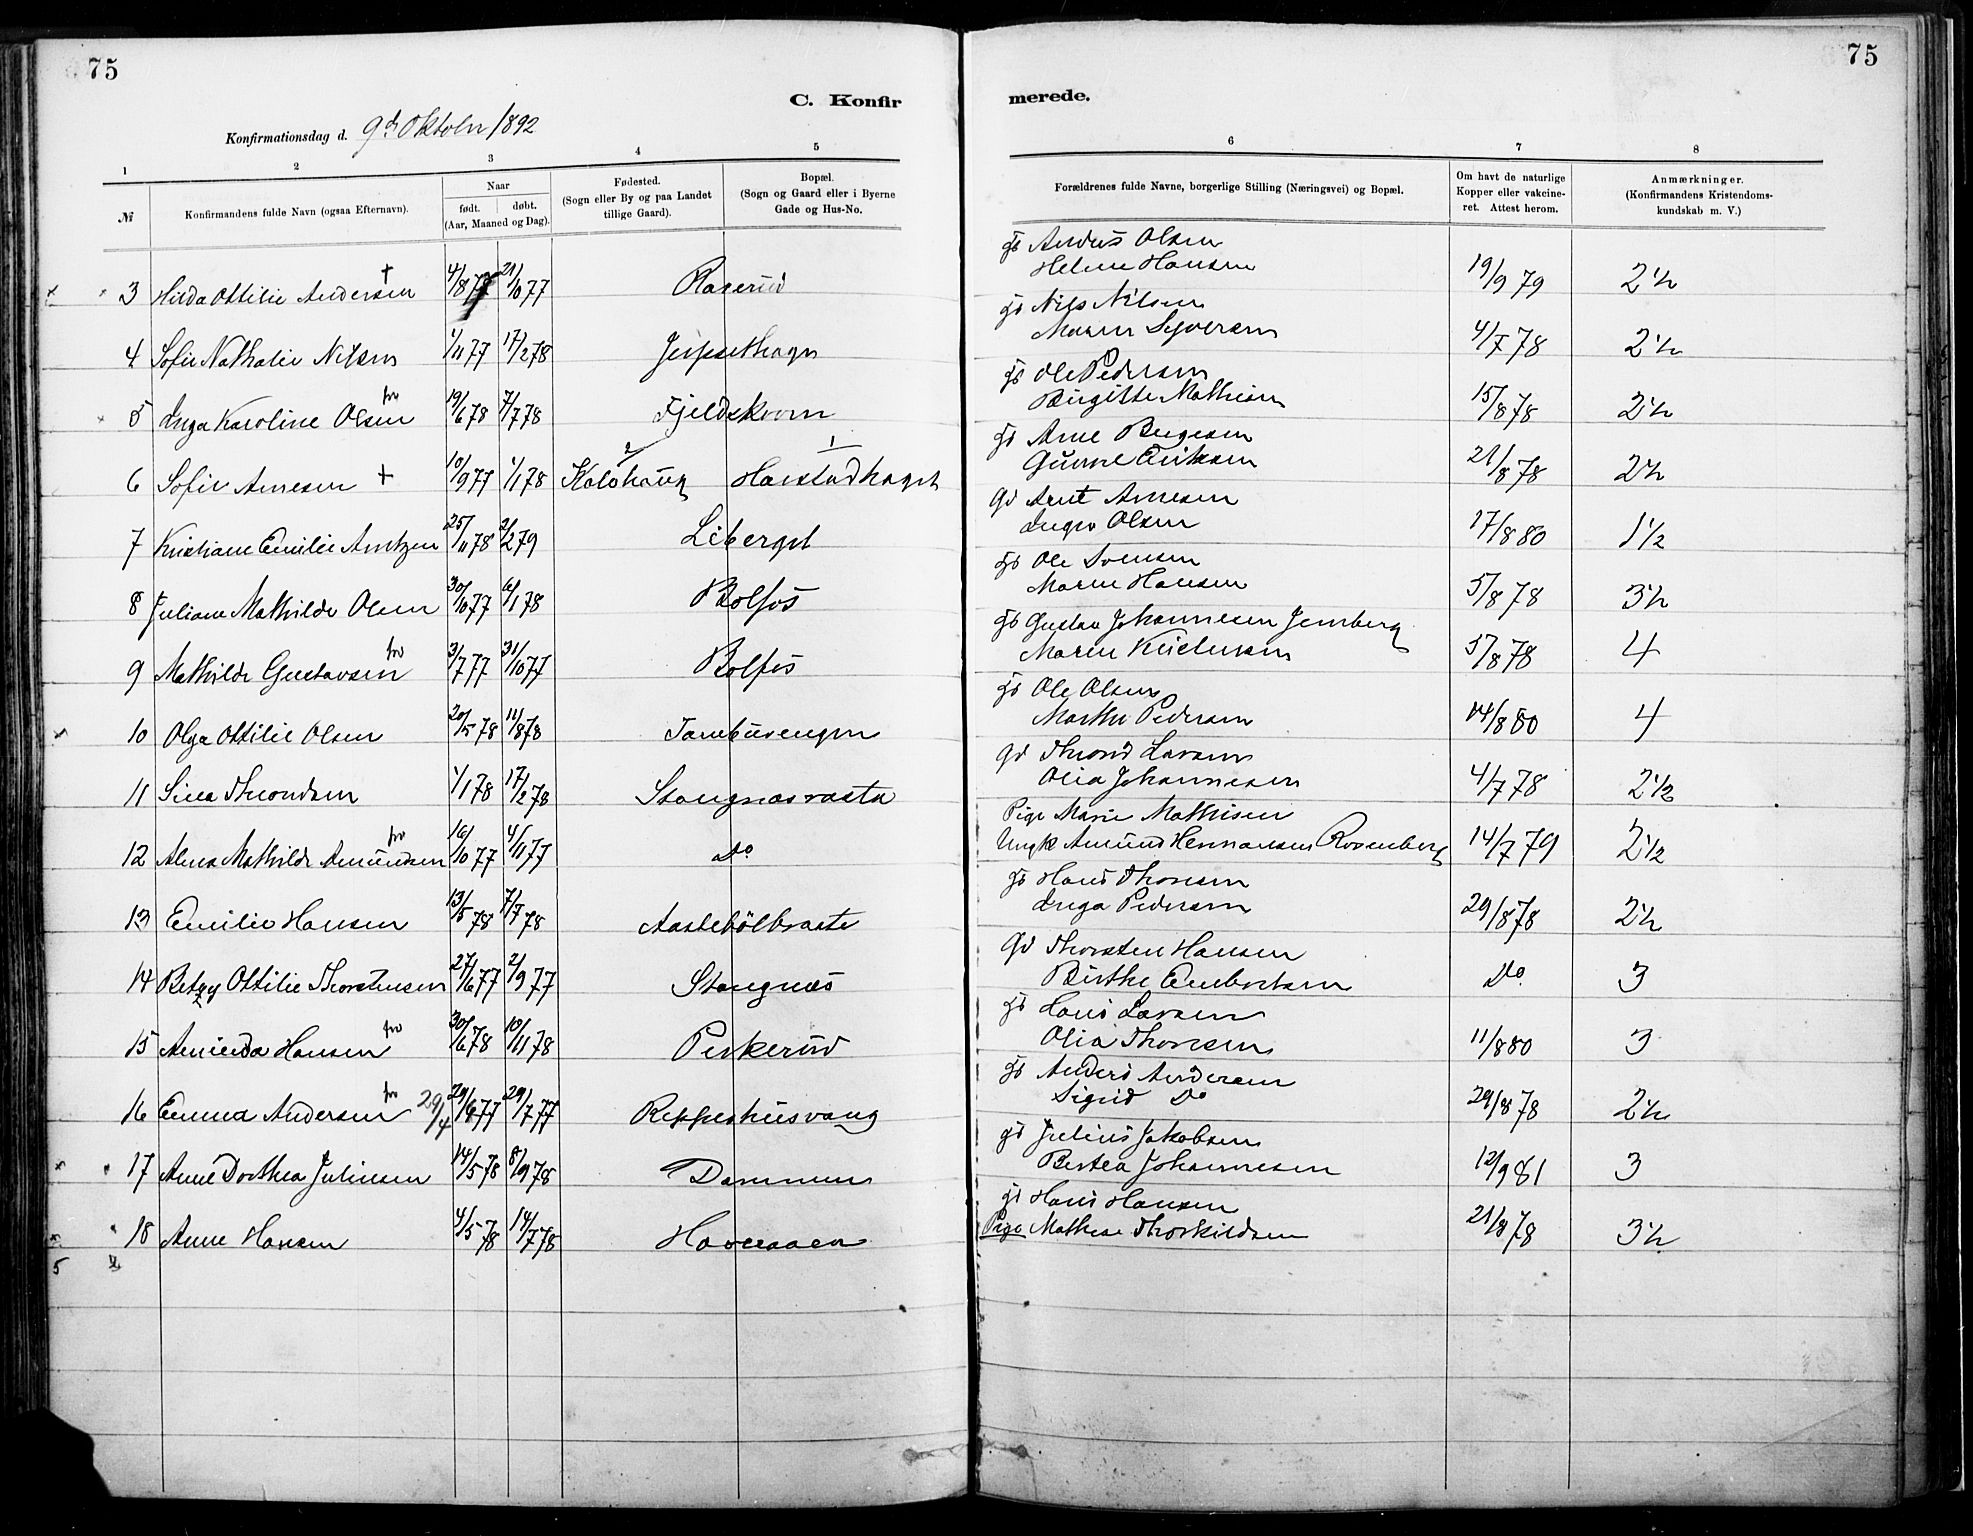 75
75
C. Konfir
merede.
Konfirmationsdag d. 9de Oktober 1892
1 2 3 4 5 6 7 8
№
Konfirmandens fulde Navn (ogsaa Efternavn).
Naar
født. døbt.
(Aar, Maaned og Dag).
Fødested.
(Sogn eller By og paa Landet
tillige Gaard).
Bopæl.
(Sogn og Gaard eller i Byerne
Gade og Hus-No.
Forældrenes fulde Navne, borgerlige Stilling (Næringsvei) og Bopæl.
Om havt de naturlige
Kopper eller vakcine-
ret. Attest herom.
Anmærkninger.
(Konfirmandens Kristendoms-
kundskab m. V.)
Anders Olsen
3 Hilda Ottilie Andersen + 4/8 77 21/10 77 Helene Hansen 19/9 79 2½
Nils Nilsen
4 Sofie Nathalie Nilsen 1/11 77 17/2 78 Maren Syversen 4/7 78 2½
Ole Pedersen
5 Inga Karoline Olsen 19/6 78 7/7 78 Fjeldskvern Birgitte Mathisen 15/8 78 2½
Arne Birgesen
6 Sofie Arnesen + 10/9 77 1/1 78 Kolshaug Harstadhaget Gunne Eriksen 21/8 78 2½
Arnt Arnesen
7 Kristiane Emilie Arntzen 25/11 78 2/2 79 Liberget Inger Olsen 17/8 80 1½
Ole Svensen
8 Juliane Mathilde Olsen 30/10 77 6/1 78 Bolfos Maren Hansen 5/8 78 3½
Gustav Johannesen Jernberg
9 Mathilde Gustavsen 3/7 77 31/10 77 Bolfos Maren Kristensen 5/8 78 4
Ole Olsen
10 Olga Ottilie Olsen 20/5 78 11/8 78 Marthe Pedersen 14/8 80 4
Thrond Larsen
11 Sina Throndsen 1/1 78 17/2 78 Stangnæsraste Olia Johannesen 4/7 78 2½
Pige Marie Mathisen
12 Alma Mathilde Amundsen 16/10 77 4/11 77 Do Ungk Amund Hermansen Rosenberg 14/7 79 2½
Hans Thoresen
13 Emilie Hansen 13/5 78 7/7 78 Aastebölbraate Inga Pedersen 29/8 78 2½
Thorsten Hansen
14 Betzy Ottilie Thorstensen 27/6 77 2/9 77 Stangnæs Birthe Embretsen Do 3
Hans Larsen
15 Amunda Hansen 30/6 78 10/11 78 Perkerud Olia Thoresen 11/8 80 3
Anders Andersen
16 Emma Andersen 29/4 29/6 77 29/7 77 Reppeshusvang Sigrid Do 29/8 78 2½
Julius Jakobsen
17 Anne Dorthea Juliussen 14/5 78 8/9 78 Dammen Bertea Johannesen 12/9 81 3
Hans Hansen
18 Anne Hansen 4/5 78 14/7 78 Haveraaen Pige Mathea Thorkildsen 21/8 78 3½